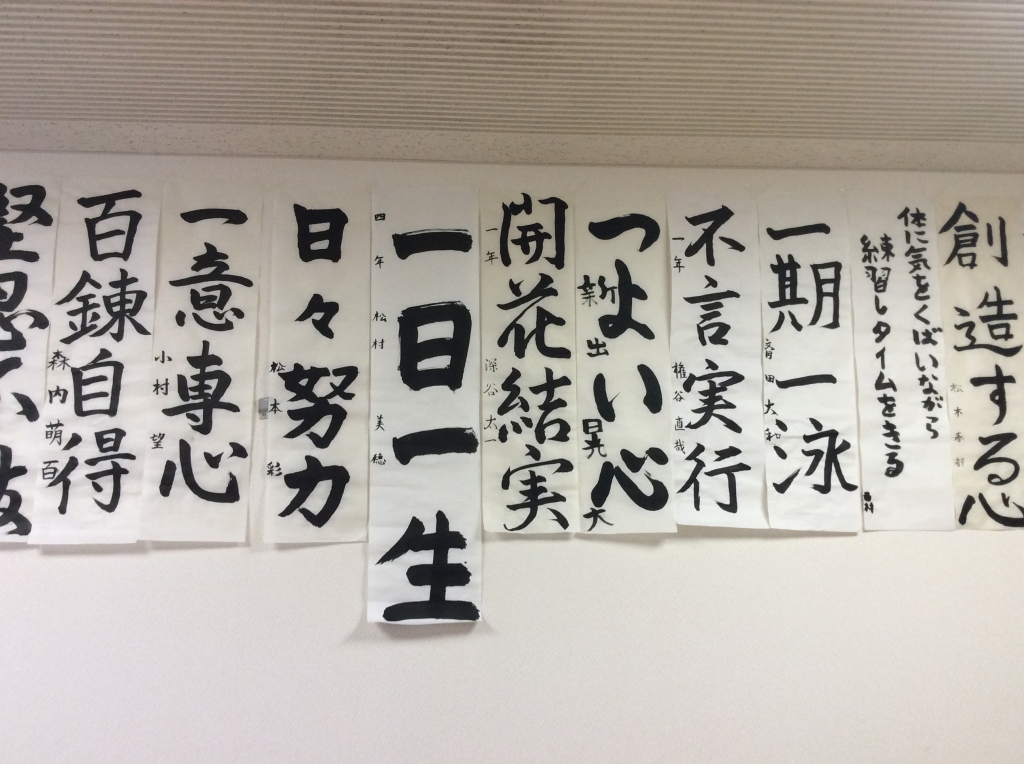 創造する心
松本
体に気をくばいながら
練習しタイムをきる
一期一泳
大和
不言実行
一年 権谷直哉
つよい心
新出晃大
開花結実
一年 深谷太一
一日一生
四年 松村美穂
日々努力
松本彩
一意専心
小村望
百錬自得
森内萌百
堅忍不抜